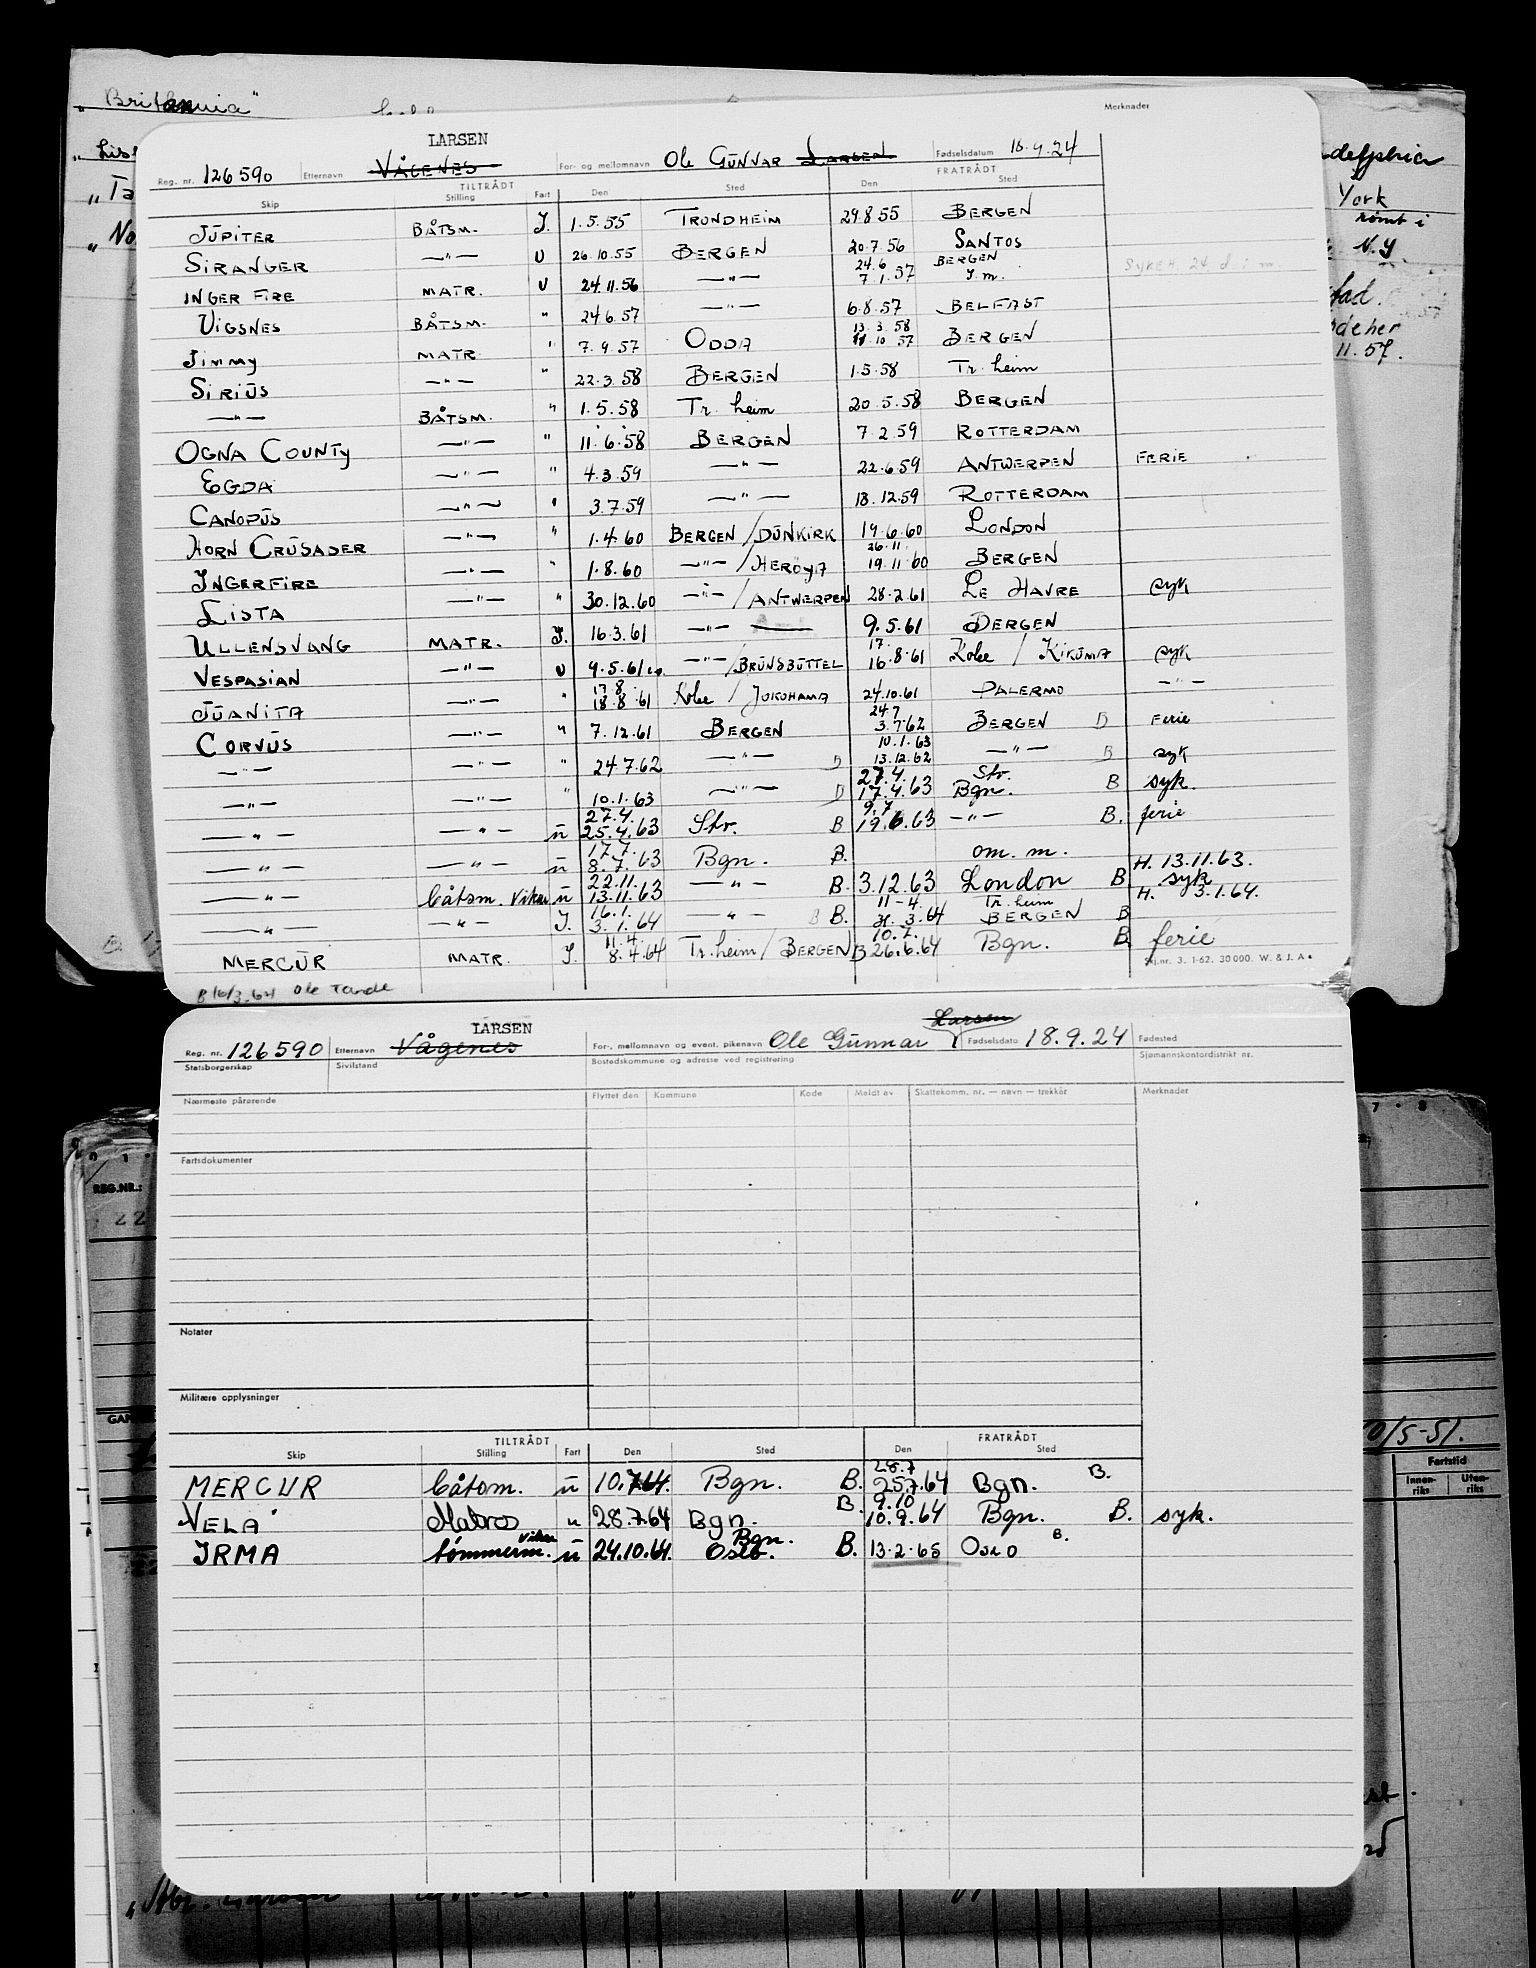 "Britannia"
Merknader
LARSEN
Reg. nr. 126590 Etternavn VÅGENES For- og mellomnavn Ole GUNNAR LARSEN Fødselsdatum 18.9.24
TILTRÅDT FRATRÅDT
Skip Stilling Fart Den Sted Den Sted
JUPITER BÅTSM. J. 1.5.55 TRONDHEIM 29.8.55 BERGEN
SIRANGER —"— U 26.10.55 BERGEN 20.7.56 SANTOS
24.6 BERGEN
INGER FIRE MATR. U 24.11.56 —"— 7.1.57 J.m.
VIGSNES BÅTSM. " 24.6.57 —"— 6.8.57 BELFAST
13.3.58
JIMMY MATR " 7.9.57 ODDA 11.10 57 BERGEN
SIRIUS —"— " 22.3.58 BERGEN 1.5.58 Tr. heim
—"— BÅTSM. " 1.5.58 Tr. heim 20.5.58 BERGEN
OGNA COUNTY —"— " 11.6.58 BERGEN 7.2.59 ROTTERDAM
EGDA —"— " 4.3.59 —"— 22.6.59 ANTWERPEN FERIE
CANOPUS —"— " 3.7.59 —"— 18.12.59 ROTTERDAM
HORN CRUSADER —"— " 1.4.60 BERGEN / DUNKIRK 19.6.60 LONDON
26.11.
INGERFIRE —"— " 1.8.60 —"— / HERÖYA 19.11.60 BERGEN
LISTA —"— " 30.12.60 —"— / ANTWERPEN 28.2.61 LE HAVRE syk
ULLENSVANG MATR. J. 16.3.61 —"— 9.5.61 BERGEN
17.
VESPASIAN —"— U 9.5.61 —"— / BRUNSBÜTTEL 16.8.61 Kobe / KIKUMA syk
17.8.
JUANITA —"— " 18.8.61 Kobe / JOKOHAMA 24.10.61 PALERMO —"—
24.7
CORVUS —"— " 7.12.61 BERGEN 3.7.62 BERGEN B FERIE
10.1.63
—"— —"— " 24.7.62 —"— B 13.12.62 —"— B syk
27.4. Stv.
—"— —"— " 10.1.63 —"— B 17.4.63 Bgn. B syk.
27.4. 9.7.
—"— —"— u 25.4.63 Stv. B 19.6.63 —"— B. ferie
17.7.
—"— —"— u 8.7.63 Bgn. B. om. m. H. 13.11.63.
22.11. syk
—"— båtsm. vikar u 13.11.63 —"— B. 3.12.63 London B H. 3.1.64.
16.1. 11-4. Tr. heim
—"— —"— J. 3.1.64 —"— B B. 31.3.64 BERGEN B
11.4. 10.7.
MERCUR MATR. J. 8.4.64 Tr.heim / BERGEN B 26.6.64 Bgn. B. ferie
B 16/3.64 Ole Tande
Bj.nr. 3. 1-62. 30000. W. & J. A.
LARSEN Larsen
Reg. nr. 126590 Etternavn Vågenes For-, mellomnavn og event. pikenavn Ole Gunnar Fødselsdato 18.9.24 Fødested
Statsborgerskap Sivilstand Bostedskommune og adresse ved registrering Sjømannskontordistrikt nr.
Nærmeste pårørende Flyttet den Kommune Kode Meldt av Skattekomm. nr. — navn — trekkår Merknader
Fartsdokumenter
Notater
Militære opplysninger
TILTRÅDT FRATRÅDT
Skip Stilling Fart Den Sted Den Sted
28.7
MERCUR båtsm. u 10.7.64. Bgn. B. 25.7.64 Bgn. B.
9.10
VELA Matros u 28.7.64 Bgn. B. 10.9.64 Bgn. B. syk.
vikar Bgn.
IRMA tømmerm. u 24.10.64. Oslo. B. 13.2.65 Oslo B.
York
rømt i
N.Y.
11.57.
REG.NR.:
22
0/5-51.
Fartstid
Innen-riks Uten-riks